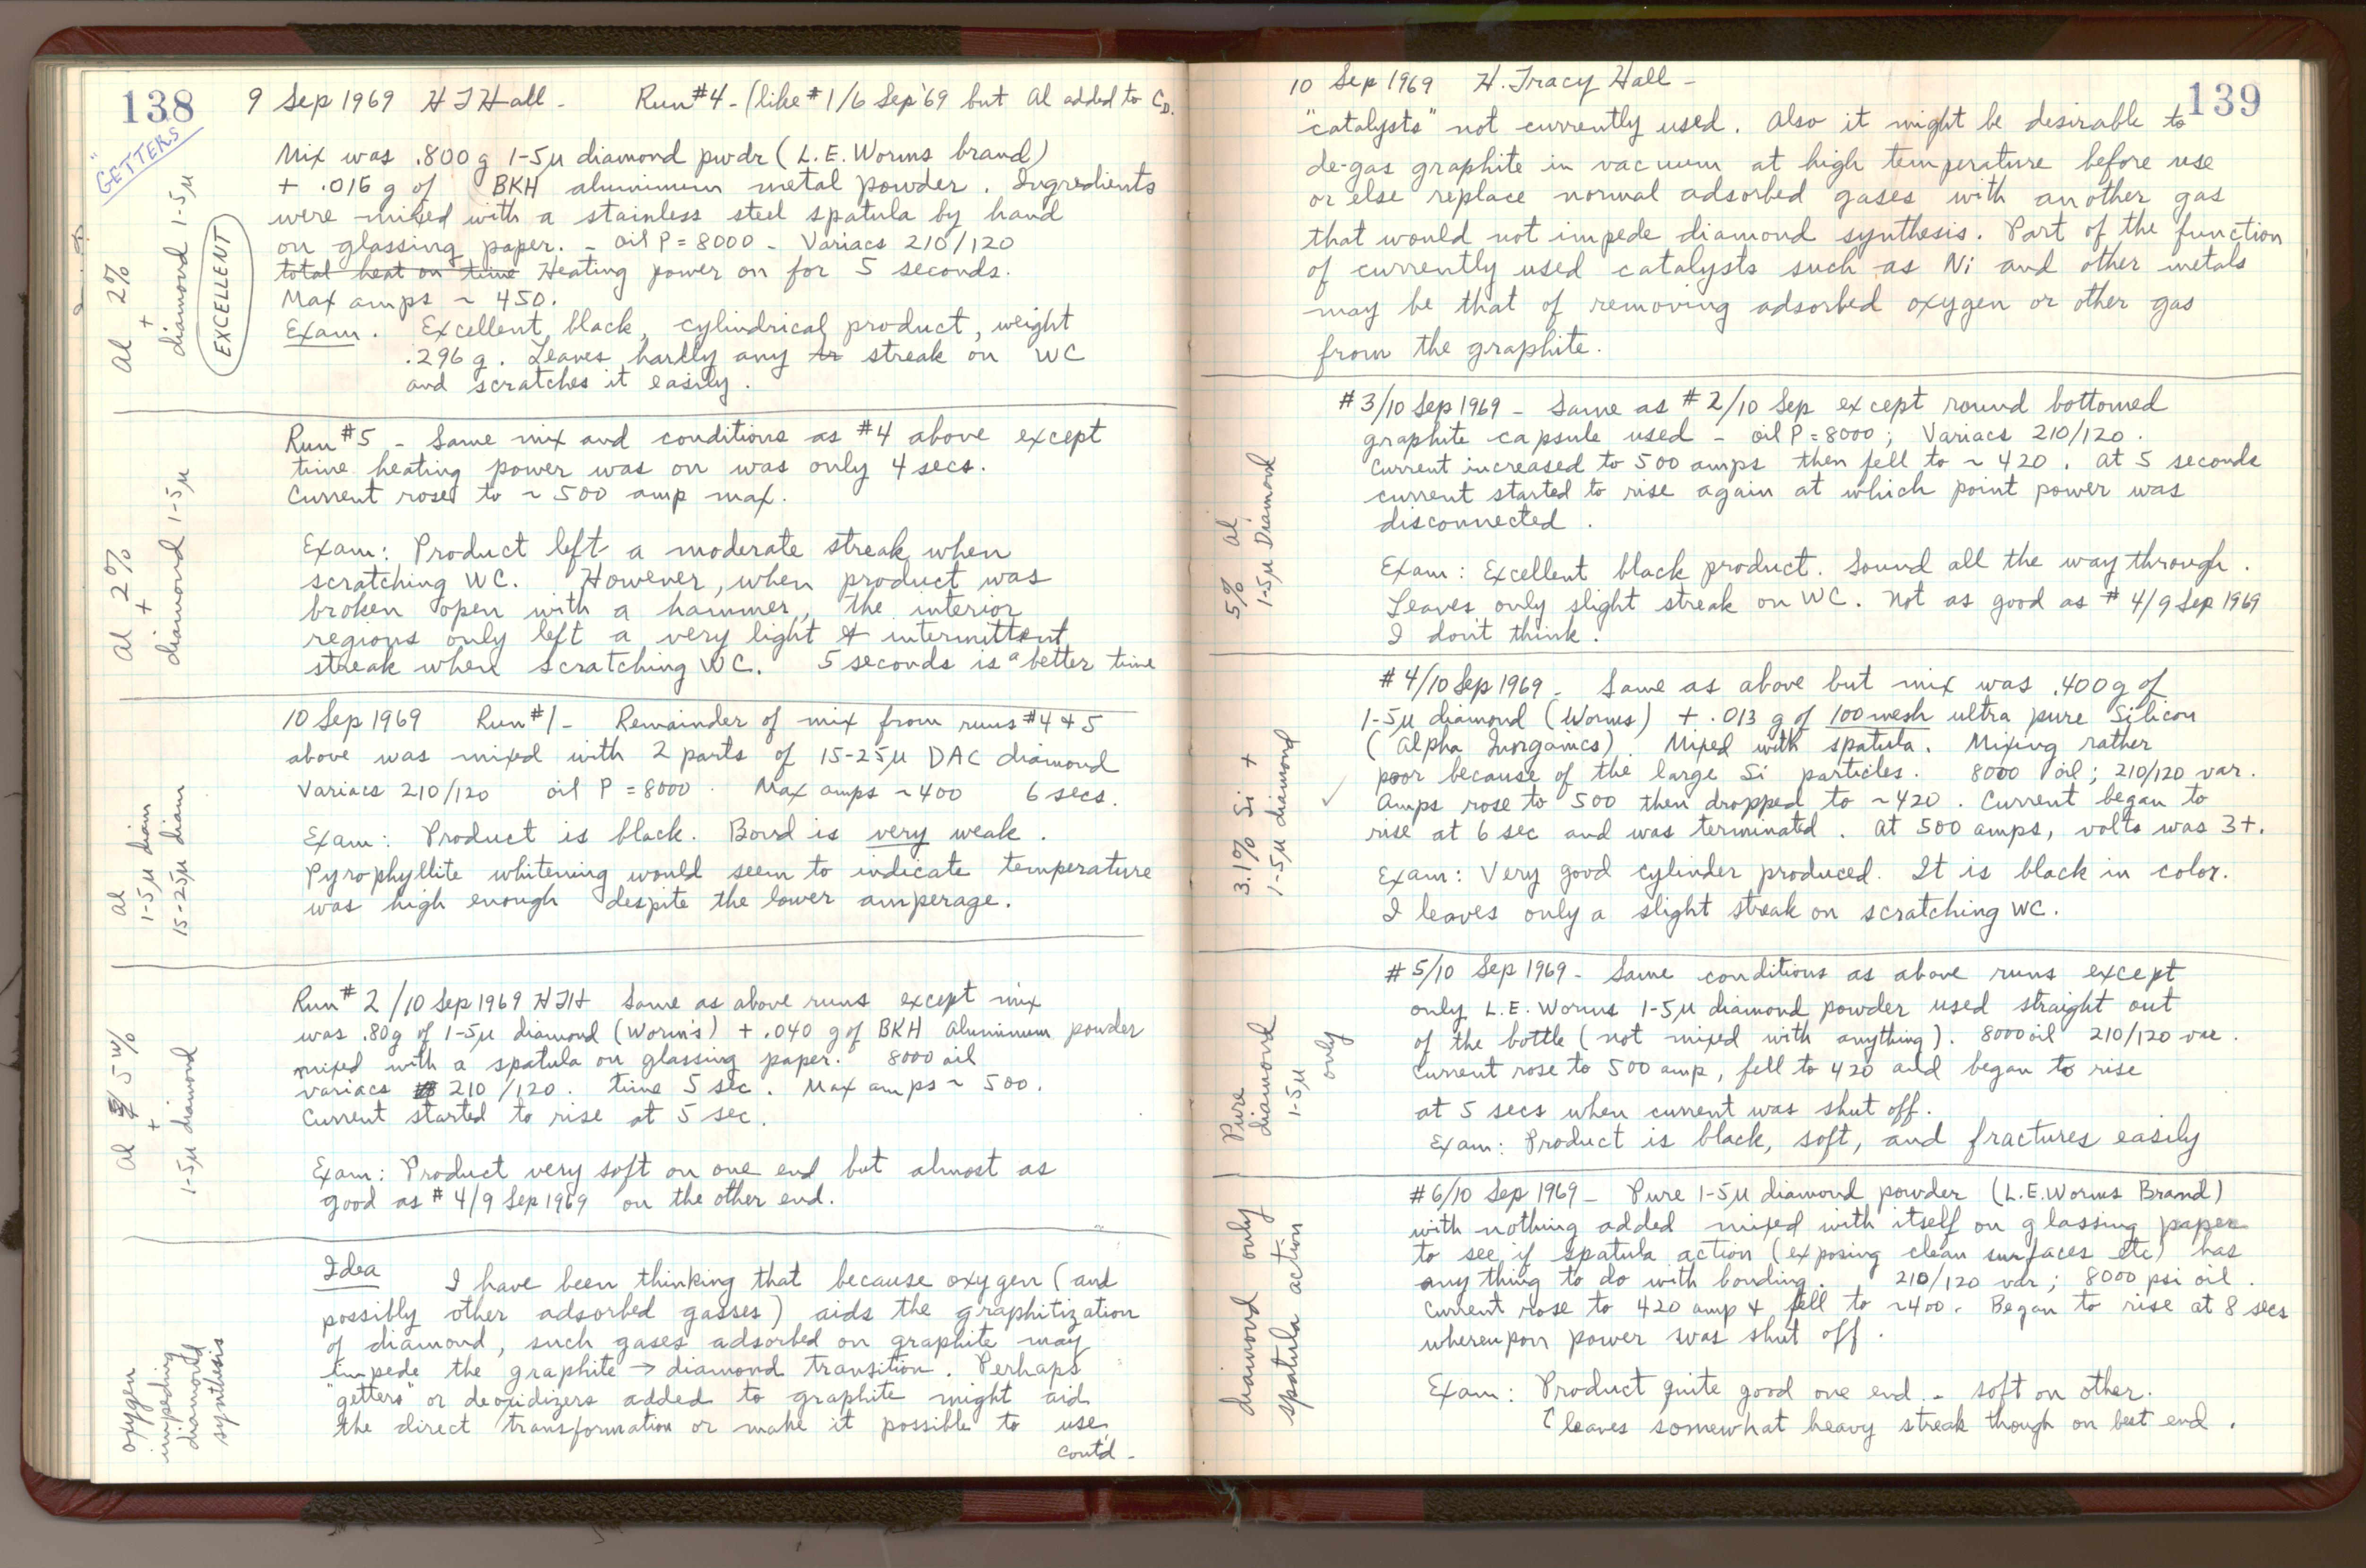 138
9 Sep 1969 H T Hall - Run #4 - (like #1/6 Sep '69 but Al added to C_D.
"GETTERS"
Al 2%
+
diamond 1-5μ
EXCELLENT
Mix was .800 g 1-5μ diamond pwdr (L.E. Worms brand)
+ .016 g of BKH aluminum metal powder. Ingredients
were mixed with a stainless steel spatula by hand
on glassing paper. - Oil P = 8000 - Variacs 210/120
total heat on time Heating power on for 5 seconds.
Max amps ~ 450.
Exam. Excellent, black, cylindrical product, weight
.296 g. Leaves hardly any streak on WC
and scratches it easily.
Al 2%
+
diamond 1-5μ
Run #5 - Same mix and conditions as #4 above except
time heating power was on was only 4 secs.
Current rose to ~ 500 amp max.
Exam: Product left a moderate streak when
scratching WC. However, when product was
broken open with a hammer, the interior
regions only left a very light & intermittent
streak when scratching WC. 5 seconds is a better time
Al
1-5μ diam
15-25μ diam
10 Sep 1969 Run #1 - Remainder of mix from runs #4 & 5
above was mixed with 2 parts of 15-25μ DAC diamond
Variacs 210/120 oil P = 8000. Max amps ~400 6 secs.
Exam: Product is black. Bond is very weak.
Pyrophyllite whitening would seem to indicate temperature
was high enough despite the lower amperage.
Al 5 w/%
+
1-5μ diamond
Run #2/10 Sep 1969 HTH Same as above runs except mix
was .80g of 1-5μ diamond (Worm's) + .040 g of BKH Aluminum powder
mixed with a spatula on glassing paper. 8000 oil
variacs 210/120. time 5 sec. Max amps ~ 500.
Current started to rise at 5 sec.
Exam: Product very soft on one end but almost as
good as #4/9 Sep 1969 on the other end.
oxygen
impeding
diamond
synthesis
Idea I have been thinking that because oxygen (and
possibly other adsorbed gasses) aids the graphitization
of diamond, such gases adsorbed on graphite may
impede the graphite → diamond transition. Perhaps
"getters" or deoxidizers added to graphite might aid
the direct transformation or make it possible to use
contd -
10 Sep 1969 H. Tracy Hall -
139
"catalysts" not currently used. Also it might be desirable to
de-gas graphite in vacuum at high temperature before use
or else replace normal adsorbed gases with another gas
that would not impede diamond synthesis. Part of the function
of currently used catalysts such as Ni and other metals
may be that of removing adsorbed oxygen or other gas
from the graphite.
5% Al
1-5μ Diamond
#3/10 Sep 1969 - Same as #2/10 Sep except round bottomed
graphite capsule used - oil P = 8000; Variacs 210/120.
Current increased to 500 amps then fell to ~ 420. At 5 seconds
current started to rise again at which point power was
disconnected.
Exam: Excellent black product. Sound all the way through.
Leaves only slight streak on WC. Not as good as #4/9 Sep 1969
I don't think.
3.1% Si +
1-5μ diamond
#4/10 Sep 1969 - Same as above but mix was .400g of
1-5μ diamond (Worms) + .013 g of 100 mesh ultra pure Silicon
(Alpha Inorganics). Mixed with spatula. Mixing rather
poor because of the large Si particles. 8000 oil; 210/120 var.
Amps rose to 500 then dropped to ~420. Current began to
rise at 6 sec and was terminated. At 500 amps, volts was 3+.
Exam: Very good cylinder produced. It is black in color.
I leaves only a slight streak on scratching WC.
Pure
diamond
1-5μ
only
#5/10 Sep 1969 - Same conditions as above runs except
only L.E. Worms 1-5μ diamond powder used straight out
of the bottle (not mixed with anything). 8000 oil 210/120 var.
Current rose to 500 amp, fell to 420 and began to rise
at 5 secs when current was shut off.
Exam: Product is black, soft, and fractures easily
diamond only
spatula action
#6/10 Sep 1969 - Pure 1-5μ diamond powder (L.E. Worms Brand)
with nothing added mixed with itself on glassing paper
to see if spatula action (exposing clean surfaces etc) has
any thing to do with bonding. 210/120 var; 8000 psi oil.
Current rose to 420 amp & fell to ~400. Began to rise at 8 secs
whereupon power was shut off.
Exam: Product quite good one end - soft on other.
leaves somewhat heavy streak though on best end.